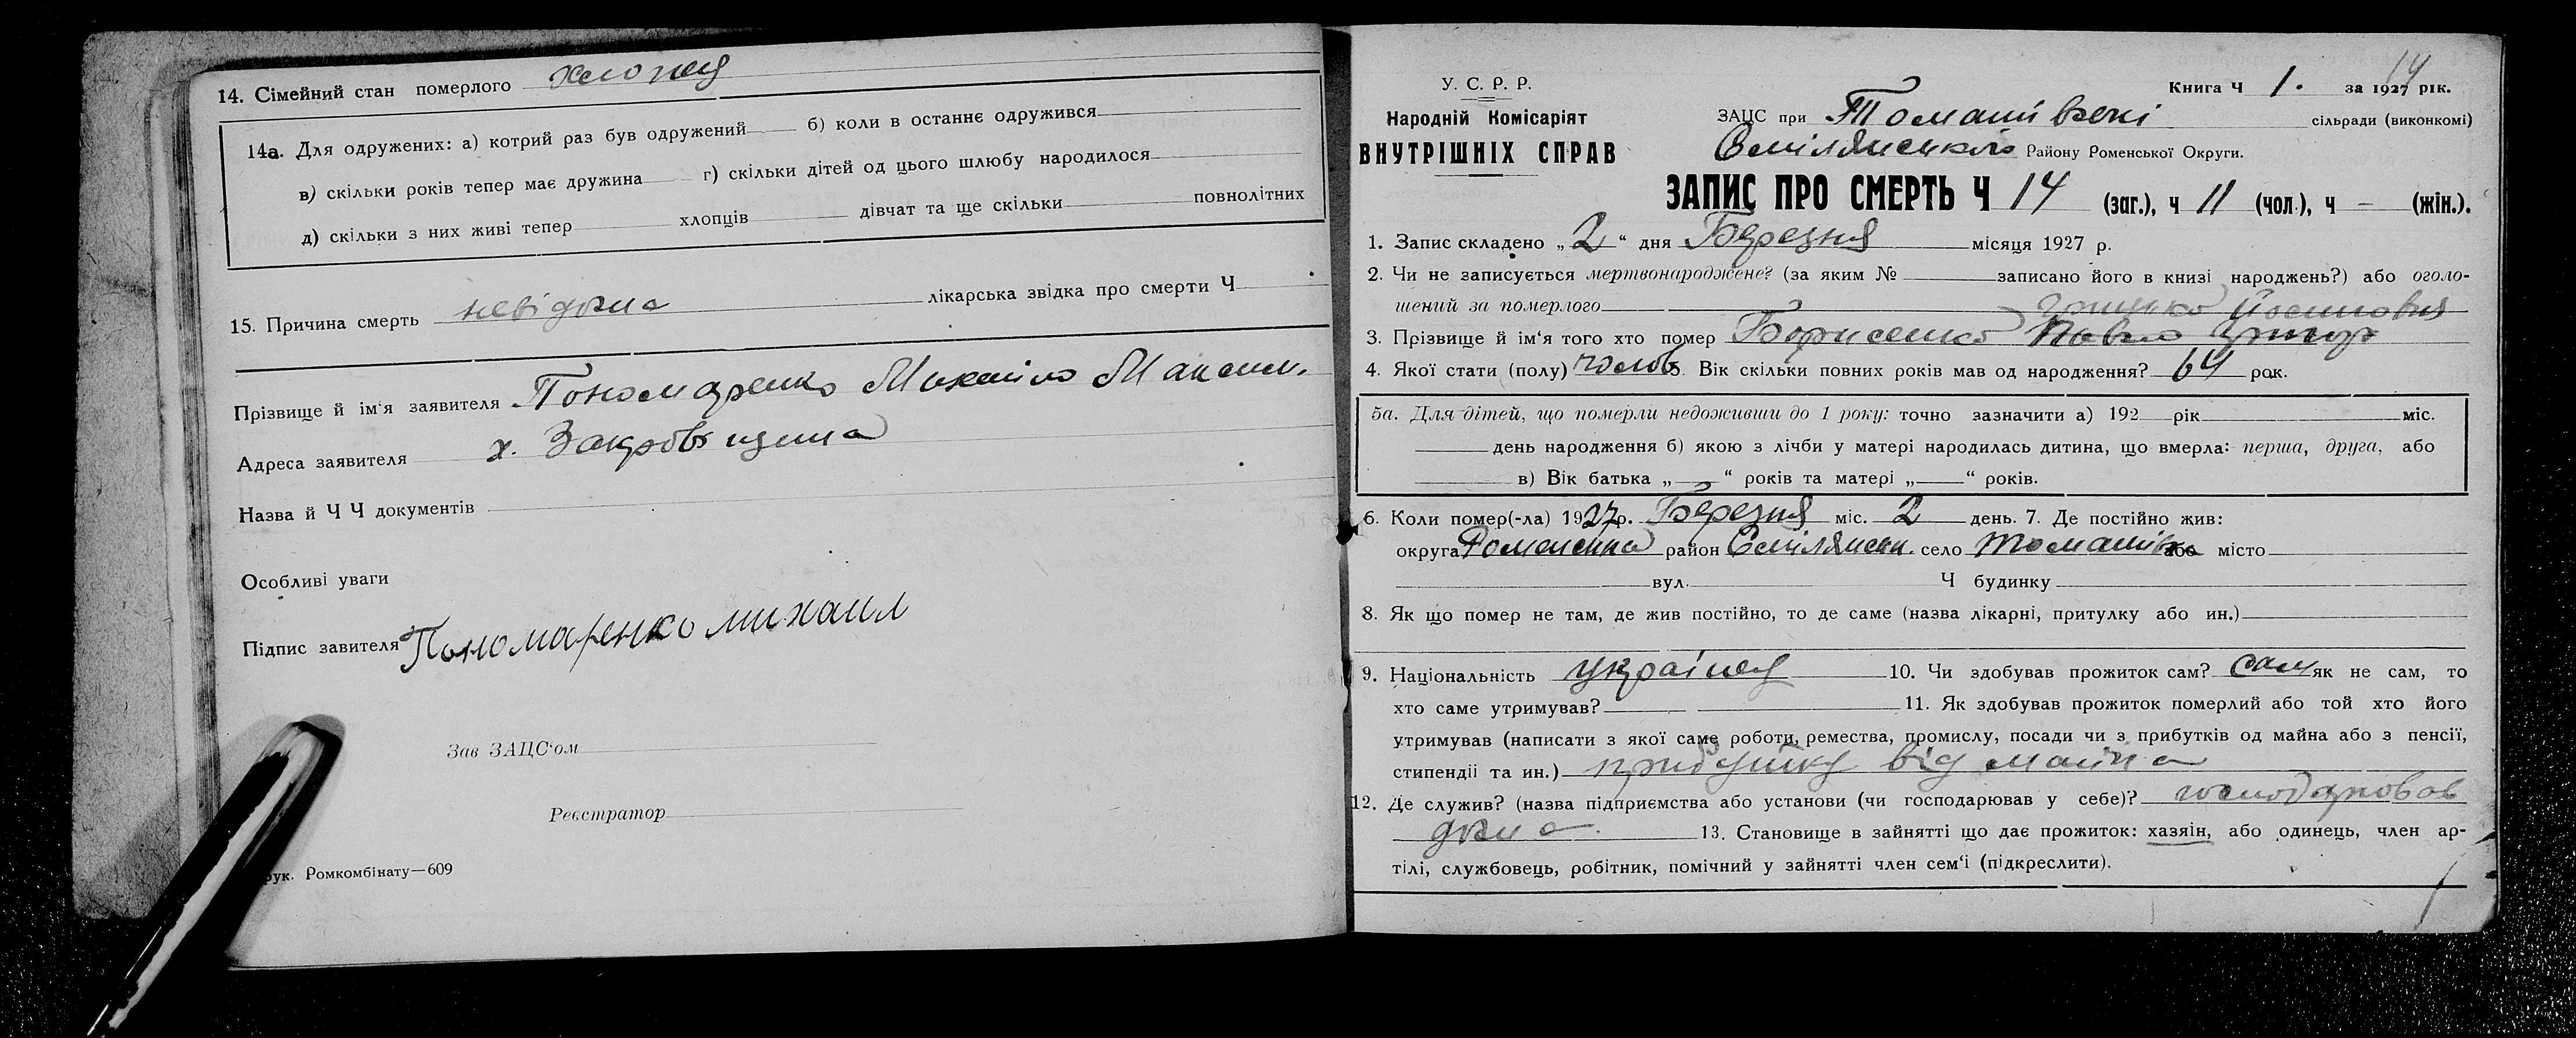 14. Сімейний стан померлого хлопец
14а. Для одружених: а) котрий раз був одружений б) коли в останнє одружився
в) скільки років тепер має дружина г) скільки дітей од цього шлюбу народилося
д) скільки з них живі тепер хлопців дівчат та ще скільки повнолітних
15. Причина смерть невідома лікарська звідка про смерти Ч
Прізвище й ім'я заявителя Пономаренко Михайло Максим.
Адреса заявителя х. Закровщина
Назва й Ч Ч документів
Особливі уваги
Підпис завителя Пономаренко михаил
Зав ЗАЦС'ом
Реєстратор
рук. Ромкомбінату—609
У. С. Р. Р.
Народній Комісаріят
ВНУТРІШНІХ СПРАВ
14
Книга Ч 1. за 1927 рік.
ЗАЦС при Томашівскі сільради (виконкомі)
Смілянського Району Роменської Округи.
ЗАПИС ПРО СМЕРТЬ Ч 14 (заг.), ч 11 (чол.), ч – (жін.).
1. Запис складено „2“ дня Березня місяця 1927 р.
2. Чи не записується мертвонароджене? (за яким № записано його в книзі народжень?) або оголо-
шений за померлого Грицько Йосипович
3. Прізвище й ім'я того хто помер Борисенко Павло Григор
4. Якої стати (полу) чолов. 5. Вік скільки повних років мав од народження? 64 рок.
5а. Для дітей, що померли недоживши до 1 року: точно зазначити а) 192 рік міс.
день народження б) якою з лічби у матері народилась дитина, що вмерла: перша, друга, або
в) Вік батька „ “ років та матері „ “ років.
6. Коли помер(-ла) 1927р. Березня міс. 2 день. 7. Де постійно жив:
округа Роменська район Смілянськ. село Томашівка або місто
вул. Ч будинку
8. Як що помер не там, де жив постійно, то де саме (назва лікарні, притулку або ин.)
9. Національність українец 10. Чи здобував прожиток сам? сам як не сам, то
хто саме утримував? 11. Як здобував прожиток померлий або той хто його
утримував (написати з якої саме роботи, ремества, промислу, посади чи з прибутків од майна або з пенсії,
стипендії та ин.) прибутку від майна
12. Де служив? (назва підприємства або установи (чи господарював у себе)? господарював
дома. 13. Становище в зайнятті що дає прожиток: хазяін, або одинець, член ар-
тілі, службовець, робітник, помічний у зайнятті член сем'ї (підкреслити).